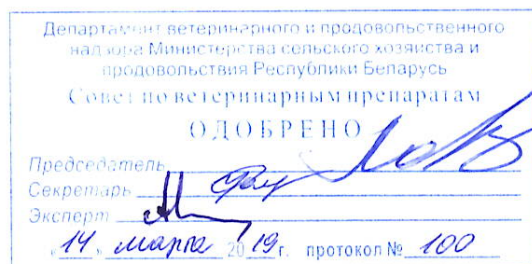 Департамент ветеринарного и продовольственного
надзора Министерства сельского хозяйства и
продовольствия Республики Беларусь
Совет по ветеринарным препаратам
ОДОБРЕНО
Председатель
Секретарь
Эксперт
«14» марта 2019г. протокол № 100